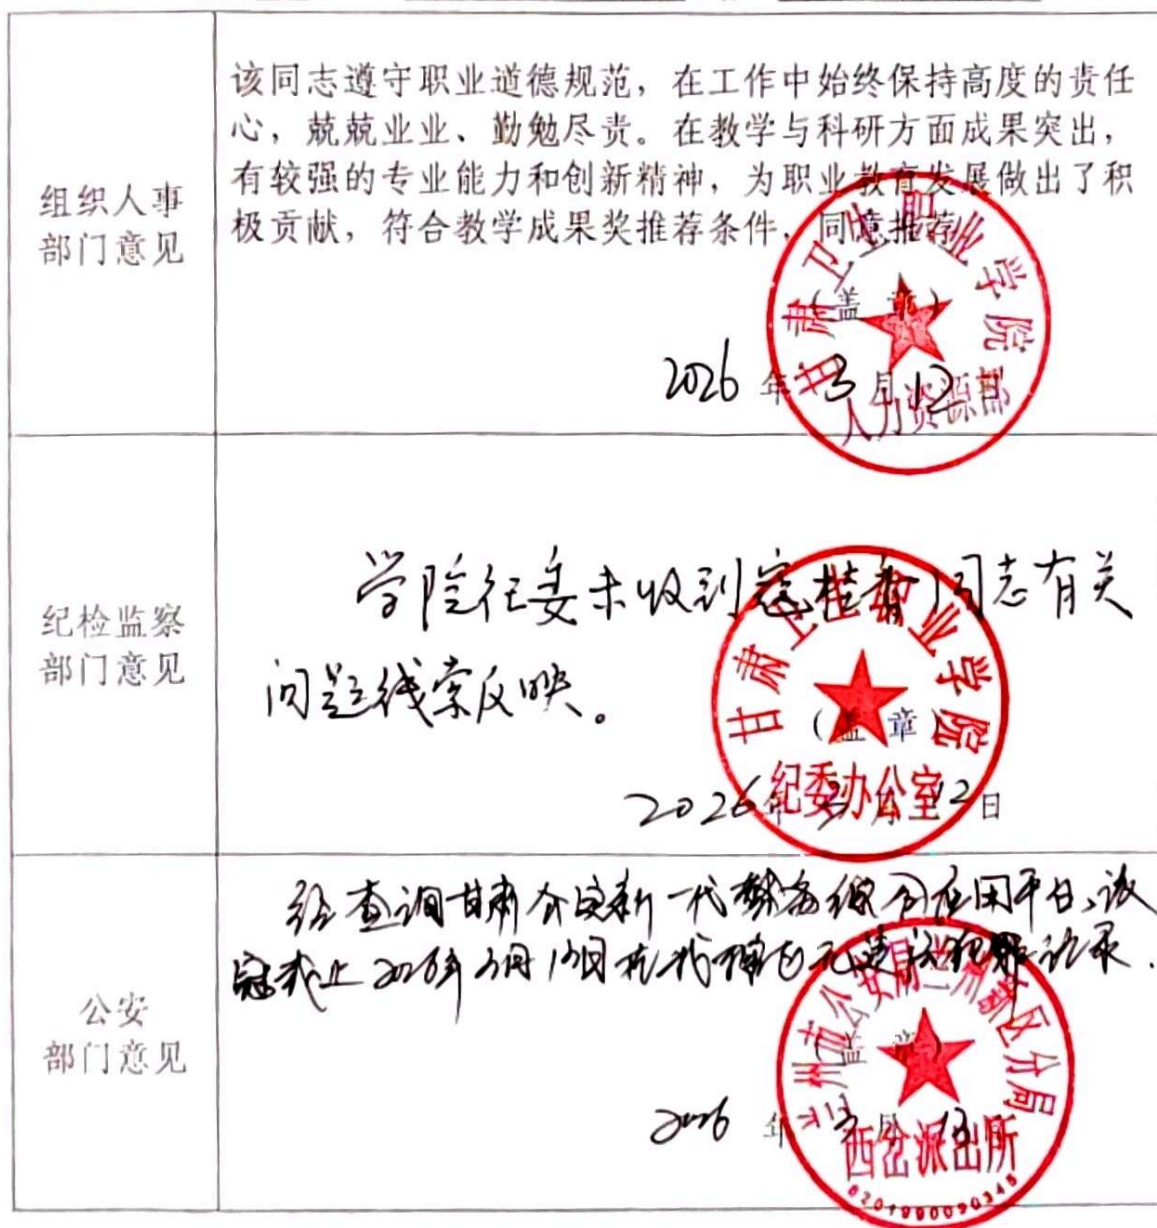 组织人事
部门意见
该同志遵守职业道德规范，在工作中始终保持高度的责任
心，兢兢业业、勤勉尽责。在教学与科研方面成果突出，
有较强的专业能力和创新精神，为职业教育发展做出了积
极贡献，符合教学成果奖推荐条件，同意推荐
（盖 章）
2026 年 3 月 12 日
甘肃卫生职业学院
人力资源部
纪检监察
部门意见
学院纪委未收到寇桂香同志有关
问题线索反映。
（盖 章）
2026年3月12日
甘肃卫生职业学院
纪委办公室
公安
部门意见
经查询甘肃公安新一代警务综合应用平台，该
截止2026年3月13日在我辖区无违法犯罪记录.
（盖 章）
2026 年 3 月 13
兰州市公安局兰州新区分局
西岔派出所